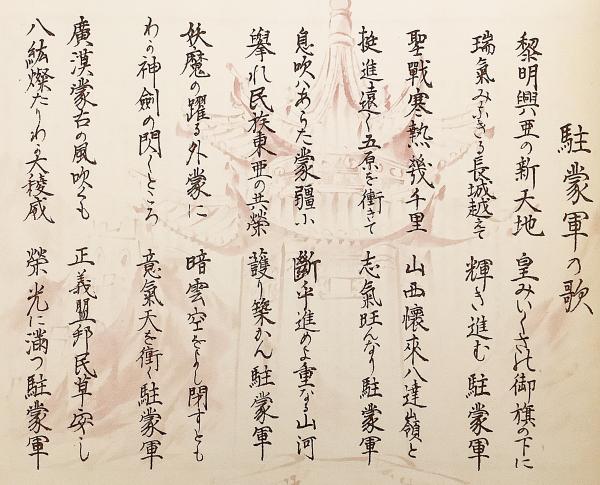 駐蒙軍の歌
黎明興亜の新天地 皇みいくさの御旗の下に
瑞氣みなぎる長城越えて 輝き進む 駐蒙軍
聖戰寒熱幾千里 山西懷來八達嶺と
挺進遠く五原を衝きて 志氣旺んなり駐蒙軍
息吹あらた蒙疆に 斷乎進めよ重なる山河
擧れ民族東亜の共榮 護り築かん 駐蒙軍
妖魔の躍る外蒙に 暗雲空をよし閉すとも
わが神劍の閃くところ 意氣天を衝く駐蒙軍
廣漠蒙古の風吹くも 正義盟邦民草安し
八紘燦たりわが大稜威 榮光に滿つ駐蒙軍